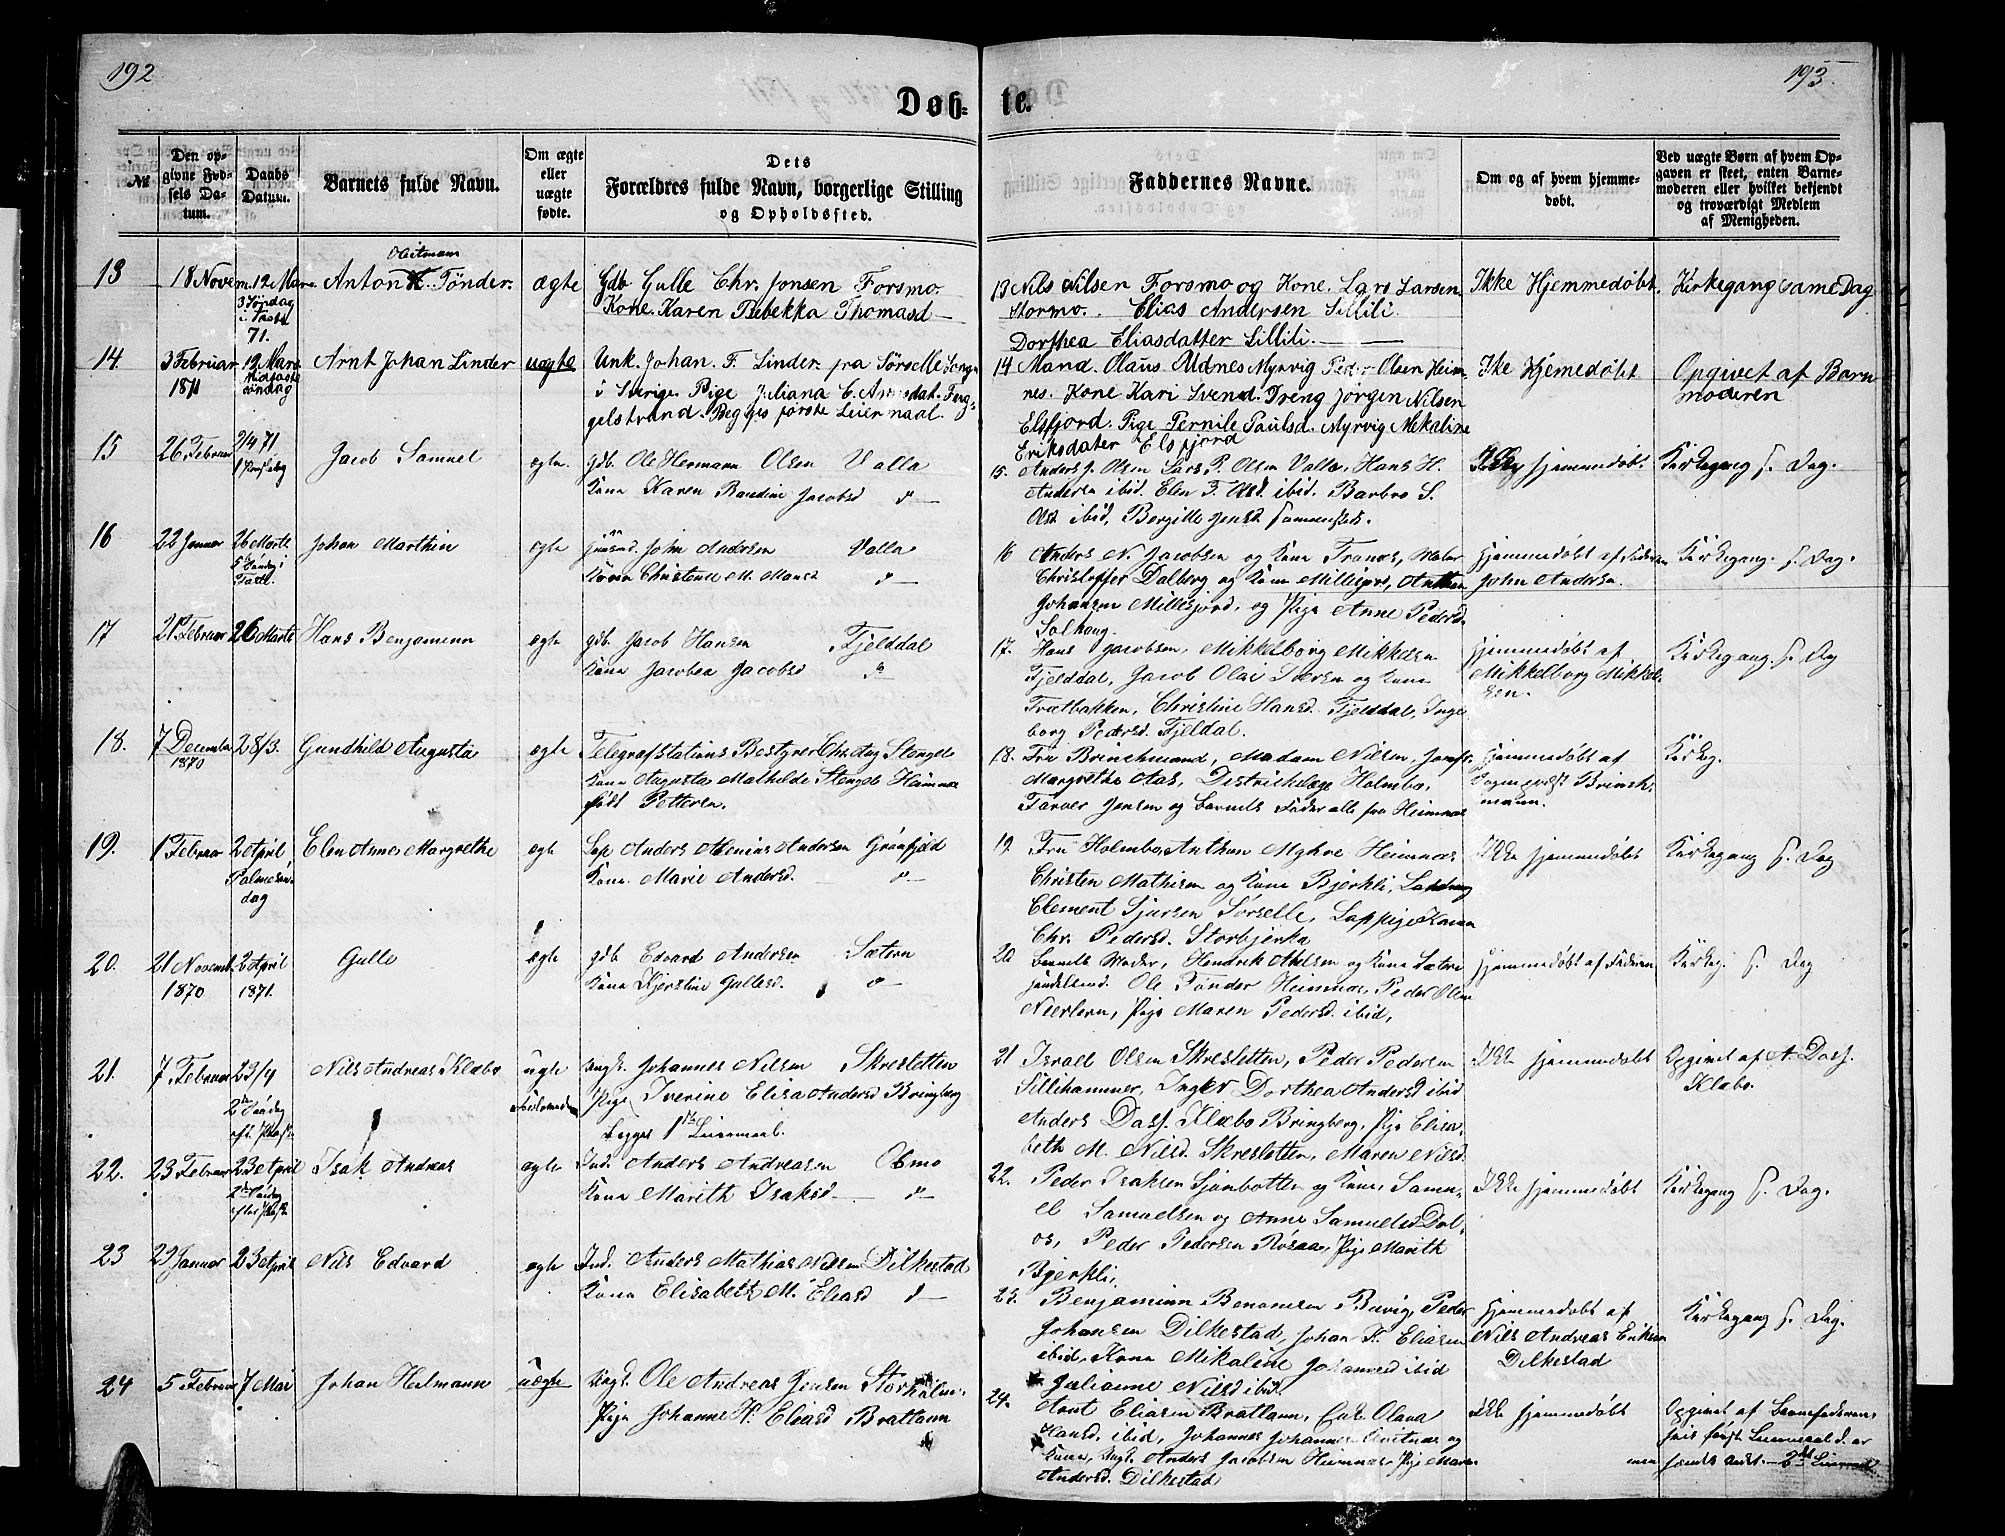 192
193.
Døb-
te.
№
Den opgivne Fødsels Datum.
Daabs Datum.
Barnets fulde Navn.
Om ægte eller uægte fødte.
Dets Forældres fulde Navn, borgerlige Stilling og Opholdssted.
Faddernes Navne.
Om og af hvem hjemmedøbt.
Ved uægte Børn af hvem Opgaven er skeet, enten Barnemoderen eller hvilket bekjendt og troværdigt Medlem af Menigheden.
13
18 Novem.
12 Mars.
3 Søndag
i Faste
71.
Anton Tönder.
ægte
Gdb Gulle Chr. Jonsen Forsmo.
Kone. Karen Rebekka Thomasd —
13 Nils Nilsen Forsmo og Kone. Lars Larsen
Stormo. Elias Andersen Lillili.
Dorthea Eliasdatter Lillili.
Ikke Hjemmedøbt.
Kirkegang same Dag
14
3 Februar
1871
19 Mars
Midfaste
söndag
Arnt Johan Linder
uægte
Unk. Johan. F. Linder. fra Sörselle Sogn
i Sverige. Pige Juliana C. Arnsdat.
gelstrand. Begges förste Leiermaal.
14 Mand. Olaus Udnes Myrvig Peder Olsen Heim-
nes. Kone Kari Svend. Dreng Jörgen Nilsen
Elsfjord. Pige Pernile Paulsd. Myrvig Mikaline
Eriksdater Elsfjord
Ike Hjemedøbt
Opgivet af Barn
moderen
15
26 Februar
2/4 71
Jacob Samuel
ægte.
gdb. Ole Hermann Olsen Valla
Kone Karen Jacobsd
15. Anders J. Olsen Lars P. Olsen Valla, Hans H.
Andersen ibid. Elen F. Olsd. ibid. Barbro S.
Olsd ibid, Bergitte Jensd sammesteds.
hjemmedøbt
Kirkegang s. Dag.
16
22 Januar
26 Marts
5 Söndag i
Faste.
Johan Marthin
ægte
John Andersen Valla
Kone Christense M. Monsd
16 Anders N. Jacobsen og Kone Tranes,
Christoffer Dalberg og Kone Millesjord,
Johansen Millesjord, og Pige Anne Pedersd.
Solhaug.
Hjemmedøbt af Faderen
John Andersen.
Kirkegang s. Dag.
17
21 Februar
26 Marts
Hans Benjaminn
ægte
gdb. Jacob Hansen Fjelddal
Kone Jacobea Jacobsd
17. Hans Jacobsen, Mikkelborg Mikkelsen
Fjelddal, Jacob Olai Iversen og Kone
Trætbakken, Christine Hansd. Fjelddal, Inge
borg Pedersd. Fjeldal.
Hjemmedøbt af
Mikkelborg Mikkel-
sen.
Kirkegang s. Dag
18.
7 December
1870
28/3.
Gundhild Augusta
ægte
Telegrafstations Bestyrer Chr. Aug Stengel
Kone Augusta Mathilde Stengel Hemnes
født Pettersen.
18. Fru Brinchmand, Madam Nilsen, Jomfr.
Margrethe Aas, Distriktslæge Holmboe,
Farver Jensen og Barnets Fader alle fra Hemnes
Hjemmedøbt af
Sogneprest Brinch-
mann.
Kirkeg.
19.
1 Februar
2 April
Palmeson-
dag
Elen Anne Margrethe
ægte
Lap Anders Andersen Grönfjeld
Kone. Marie Andersd.
19 Fru Holmboe, Anthon Myhre Hemnes
Christen Mathisen og Kone Bjerkli,
Clement Sjursen Sörselle, Lappige
Chr. Pedersd. Storbjerka
Ikke Hjemmedøbt
Kirkegang s. Dag
20.
21 Novemb.
1870
2 April
1871.
Gulle
ægte
gdb Edvard Andersen Sætern
Kone Kjerstine Gullesd.
20 Barnets Moder, Hendrik Nielsen og Kone Sætern
Handelsmd. Ole Tönder Hemnes, Peder Olsen
Neerlern, Pige Maren Pedersd. ibid,
Hjemmedøbt af Faderen
Kirkeg. s. Dag
21.
7 Februar
23/4
2den Söndag
eft. Paaske
Nils Andreas Klæbo
uægte
Ungk. Johannes Nilsen Skresletten
Pige Iverine Elisa Andersd Bringberg
begges 1ste Leiermaal.
21 Israel Olsen Skresletten, Peder Pedersen
Lillehammer, Inger Dorthea Andersd ibid
Anders Dass. Klæbo Bringberg, Pige Elisa-
beth M. Nilsd. Skresletten, Maren Nilsd.
Ikke Hjemmedøbt
Opgivet af A. Dass.
Klæbo.
22.
23 Februar
23 April
2den Söndag
efter Paaske
Isak Andreas
ægte
Ind. Anders Andreasen Osmo
Kone Marith Isaksd
22. Peder Isaksen Sjonbotten og Kone, Samu-
el Samuelsen og Anne Samuelsd Dal-
os, Peder Pedersen Rösaa, Pige Marith
Bjerkli,
Ikke Hjemmedøbt
Kirkegang s. Dag.
23
29 Januar
23 April
Nils Edvard
ægte
Ind. Anders Mathias Nilsen Dilkestad
Kone Elisabeth M. Eliasd
23. Benjaminn Benonisen Buvig, Peder
Johansen Dilkestad, Johan K. Eliasen
ibid, Kone Mikaline Johannesd ibid
Julianne Nilsd ibid.
Hjemmedøbt af
Nils Andreas Eriksen
Dilkestad
Kirkegang s. Dag.
24
5 Februar
7 Mai
Johan Helmann
uægte
Ungk. Ole Andreas Jensen Storholm.
Pige Johanne H. Eliasd Brattann
24. Arnt Eliasen Brattann, Enke Olava
Hansd. ibid, Johannes Johannes og
Kone, Ungk. Anders Jacobsen Hemnes Pige Maren
Andersd. Dilkestad
Ikke Hjemmedøbt
Opgivet af Barnefaderen,
hvis første Leiermaal d. er
men hendes andet. 2det Leiermaal